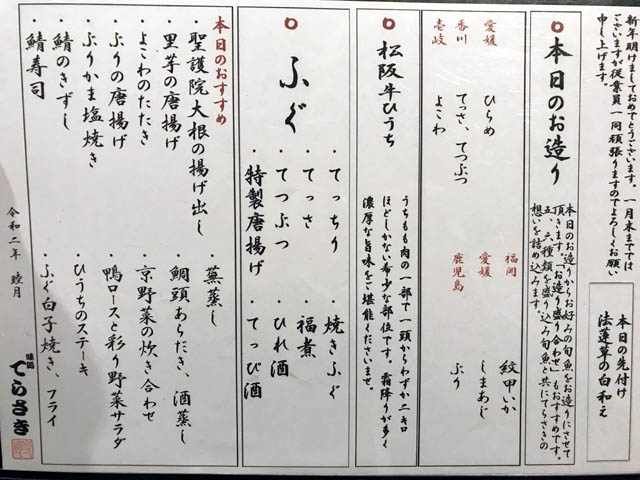 新年明けましておめでとうございます。一月末までは
ございますが従業員一同頑張りますのでよろしくお願い
申し上げます。
本日の先付け
法蓮草の白和え
本日のお造り
本日のお造りからお好みの旬魚をお造りにさせて
頂きます。「お造り盛り合わせ」もおすすめです。
五、六種類を盛り込み旬魚と共にてらさきの
想いを詰め込みます。
愛媛 ひらめ
香川 てっさ、てつぶつ
壱岐 よこわ
福岡 紋甲いか
愛媛 しまあじ
鹿児島 ぶり
松阪牛ひうち
うちもも肉の一部で一頭からわずか二キロ
ほどしかない希少な部位です。霜降りが多く
濃厚な旨味をご堪能くださいませ。
ふぐ
・てっちり
・てっさ
・てつぶつ
・特製唐揚げ
・焼きふぐ
・福煮
・ひれ酒
・てっぴ酒
本日のおすすめ
・聖護院大根の揚げ出し
・里芋の唐揚げ
・よこわのたたき
・ぶりの唐揚げ
・ぶりかま塩焼き
・鯖のきずし
・鯖寿司
・蕪蒸し
・鯛頭あらだき、酒蒸し
・京野菜の炊き合わせ
・鴨ロースと彩り野菜サラダ
・ひうちのステーキ
・ふぐ白子焼き、フライ
令和二年 睦月
てらさき